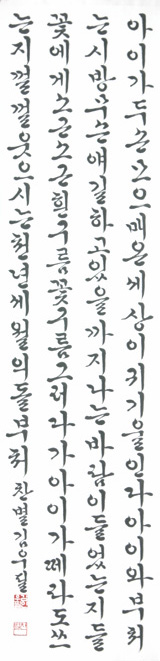 아이가두손모으매온세상이귀기울인다아이와부처
는시방무슨얘길하고있을까지나는바람이들었는지들
꽃에게소근소근흰구름꽃구름그러다가아이가떼라도쓰
는지껄껄웃으시는천년세월의돌부처 찬별